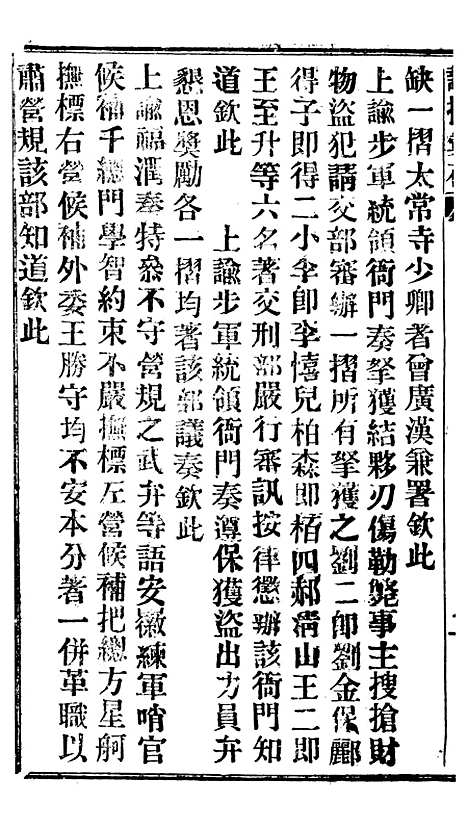 缺一摺太常寺少卿者曾廣漢兼署欽此
上諭步軍統領衙門奏拏獲結夥刃傷勒斃事主搜搶財
物盜犯請交部審辦一摺所有拏獲之劉二即劉金保酈
得子即得二小李即李憘兒柏森即栢四郝淸山王二即
王至升等六名著交刑部嚴行審訊按律懲辦該衙門知
道欽此　　上諭步軍統領衙門奏遵保獲盜出力員弁
懇恩奬勵各一摺均著該部議奏欽此
上諭福潤奏特叅不守營規之武弁等語安徽練軍哨官
候補千總門學智約束不嚴撫標左營候補把總方星舸
撫標右營候補外委王勝守均不安本分著一併革職以
肅營規該部知道欽此